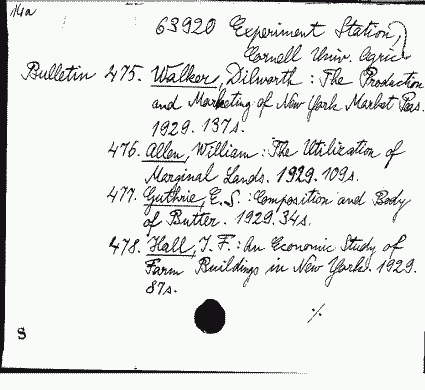 14a
63920 Experiment Station,
Cornell Univ. Agric.
Bulletin 475. Walker, Dilworth: The Production
and Marketing of New York Market Peas.
1929. 137s.
476. Allen, William: The Utilization of
Marginal Lands. 1929. 109s.
477. Guthrie, E.S.: Composition and Body
of Butter. 1929. 34s.
478. Hall, T. F.: An Economic Study of
Farm Buildings in New York. 1929.
87s.
S
%